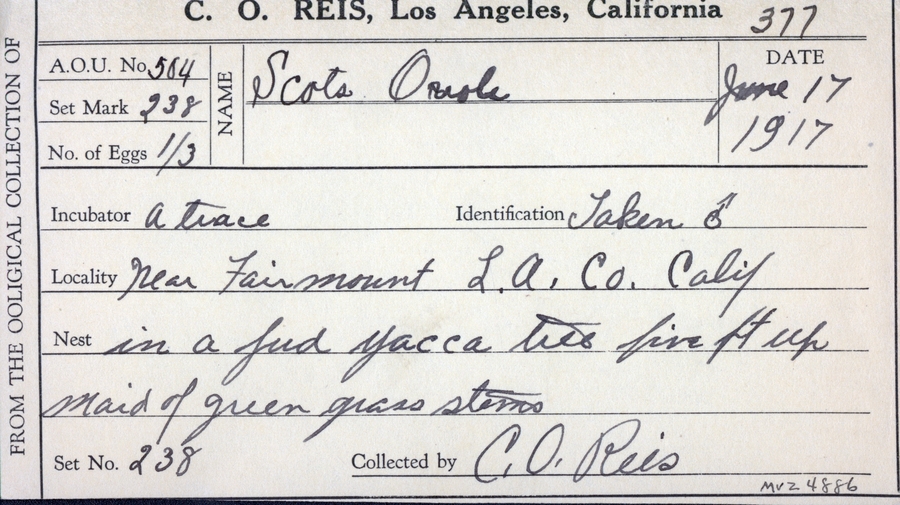 C. O. REIS, Los Angeles, California 377
FROM THE OOLIGICAL COLLECTION OF
A.O.U. No. 504
Set Mark 238
No. of Eggs 1/3
NAME Scots Oriole
DATE
June 17
1917
Incubator A trace Identification Taken ♂
Locality Near Fairmount L.A. Co. Calif
Nest in a yacca tree five ft up
maid of green grass stems
Set No. 238 Collected by C. O. Reis
MVZ 4886